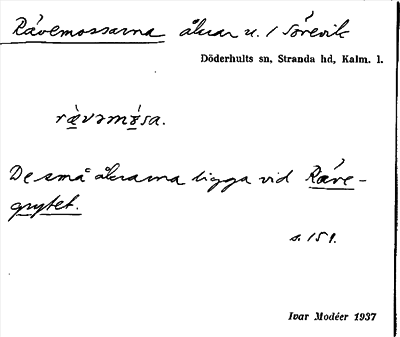 Rävemossarna åkrar u. / Sörevik
Döderhults sn, Stranda hd, Kalm. l.
rä̀vəmɷ̀sa.
De små åkrarna ligga vid Räve-
grytet.
s. 151.
Ivar Modéer 1937